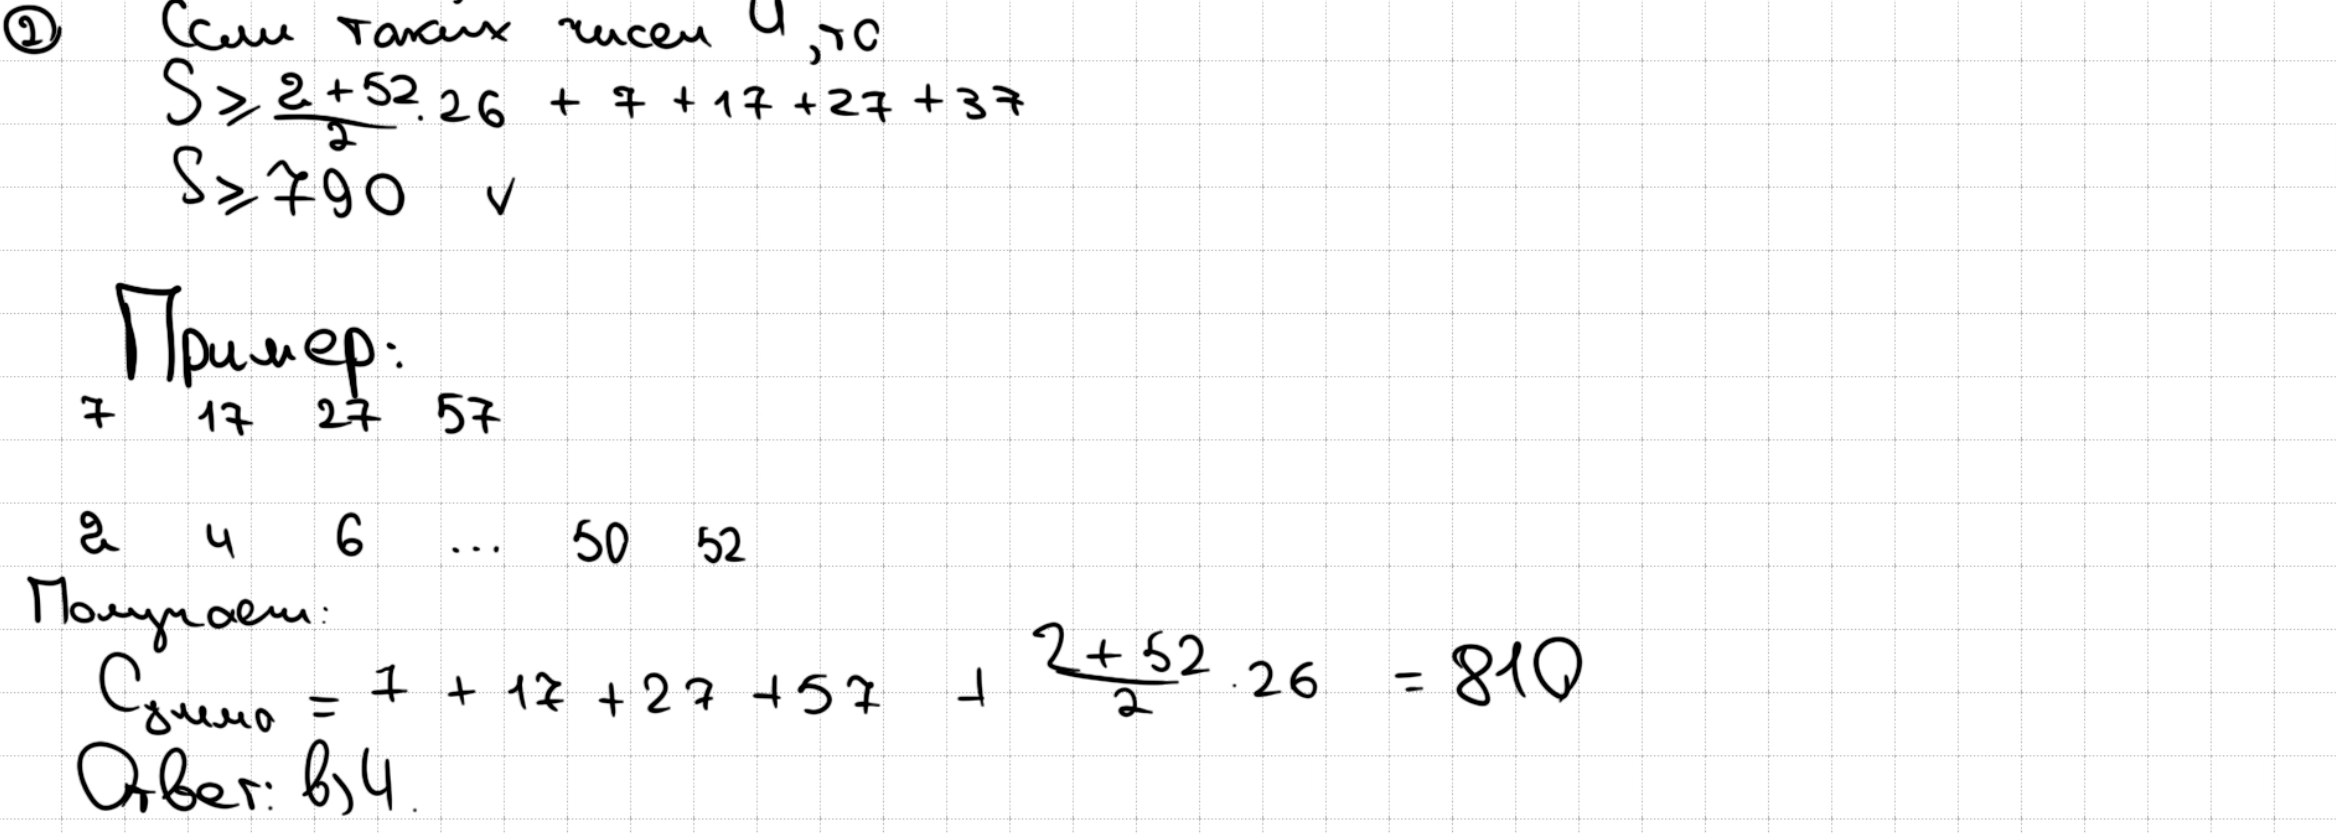 ② Если таких чисел 4, то
S ≥ (2+52)/2 · 26 + 7 + 17 + 27 + 37
S ≥ 790 v
Пример:
7 17 27 57
2 4 6 ... 50 52
Получаем:
Сумма = 7 + 17 + 27 + 57 + (2+52)/2 · 26 = 810
Ответ: в) 4.